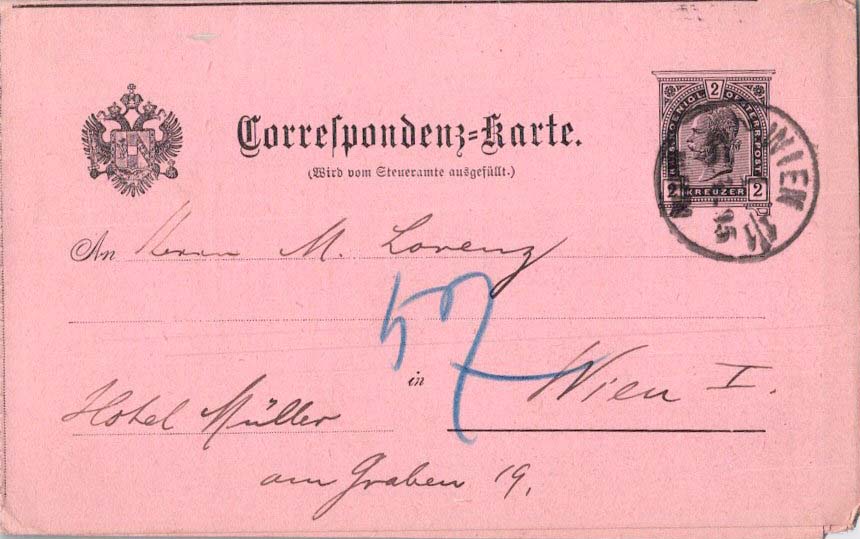 Correspondenz-Karte.
(Wird vom Steueramte ausgefüllt.)
2
KAIS. KOENIGL. OESTERR. POST
2 KREUZER 2
WIEN
An Herrn M. Lorenz
57
in Wien I.
Hotel Müller
am Graben 19.